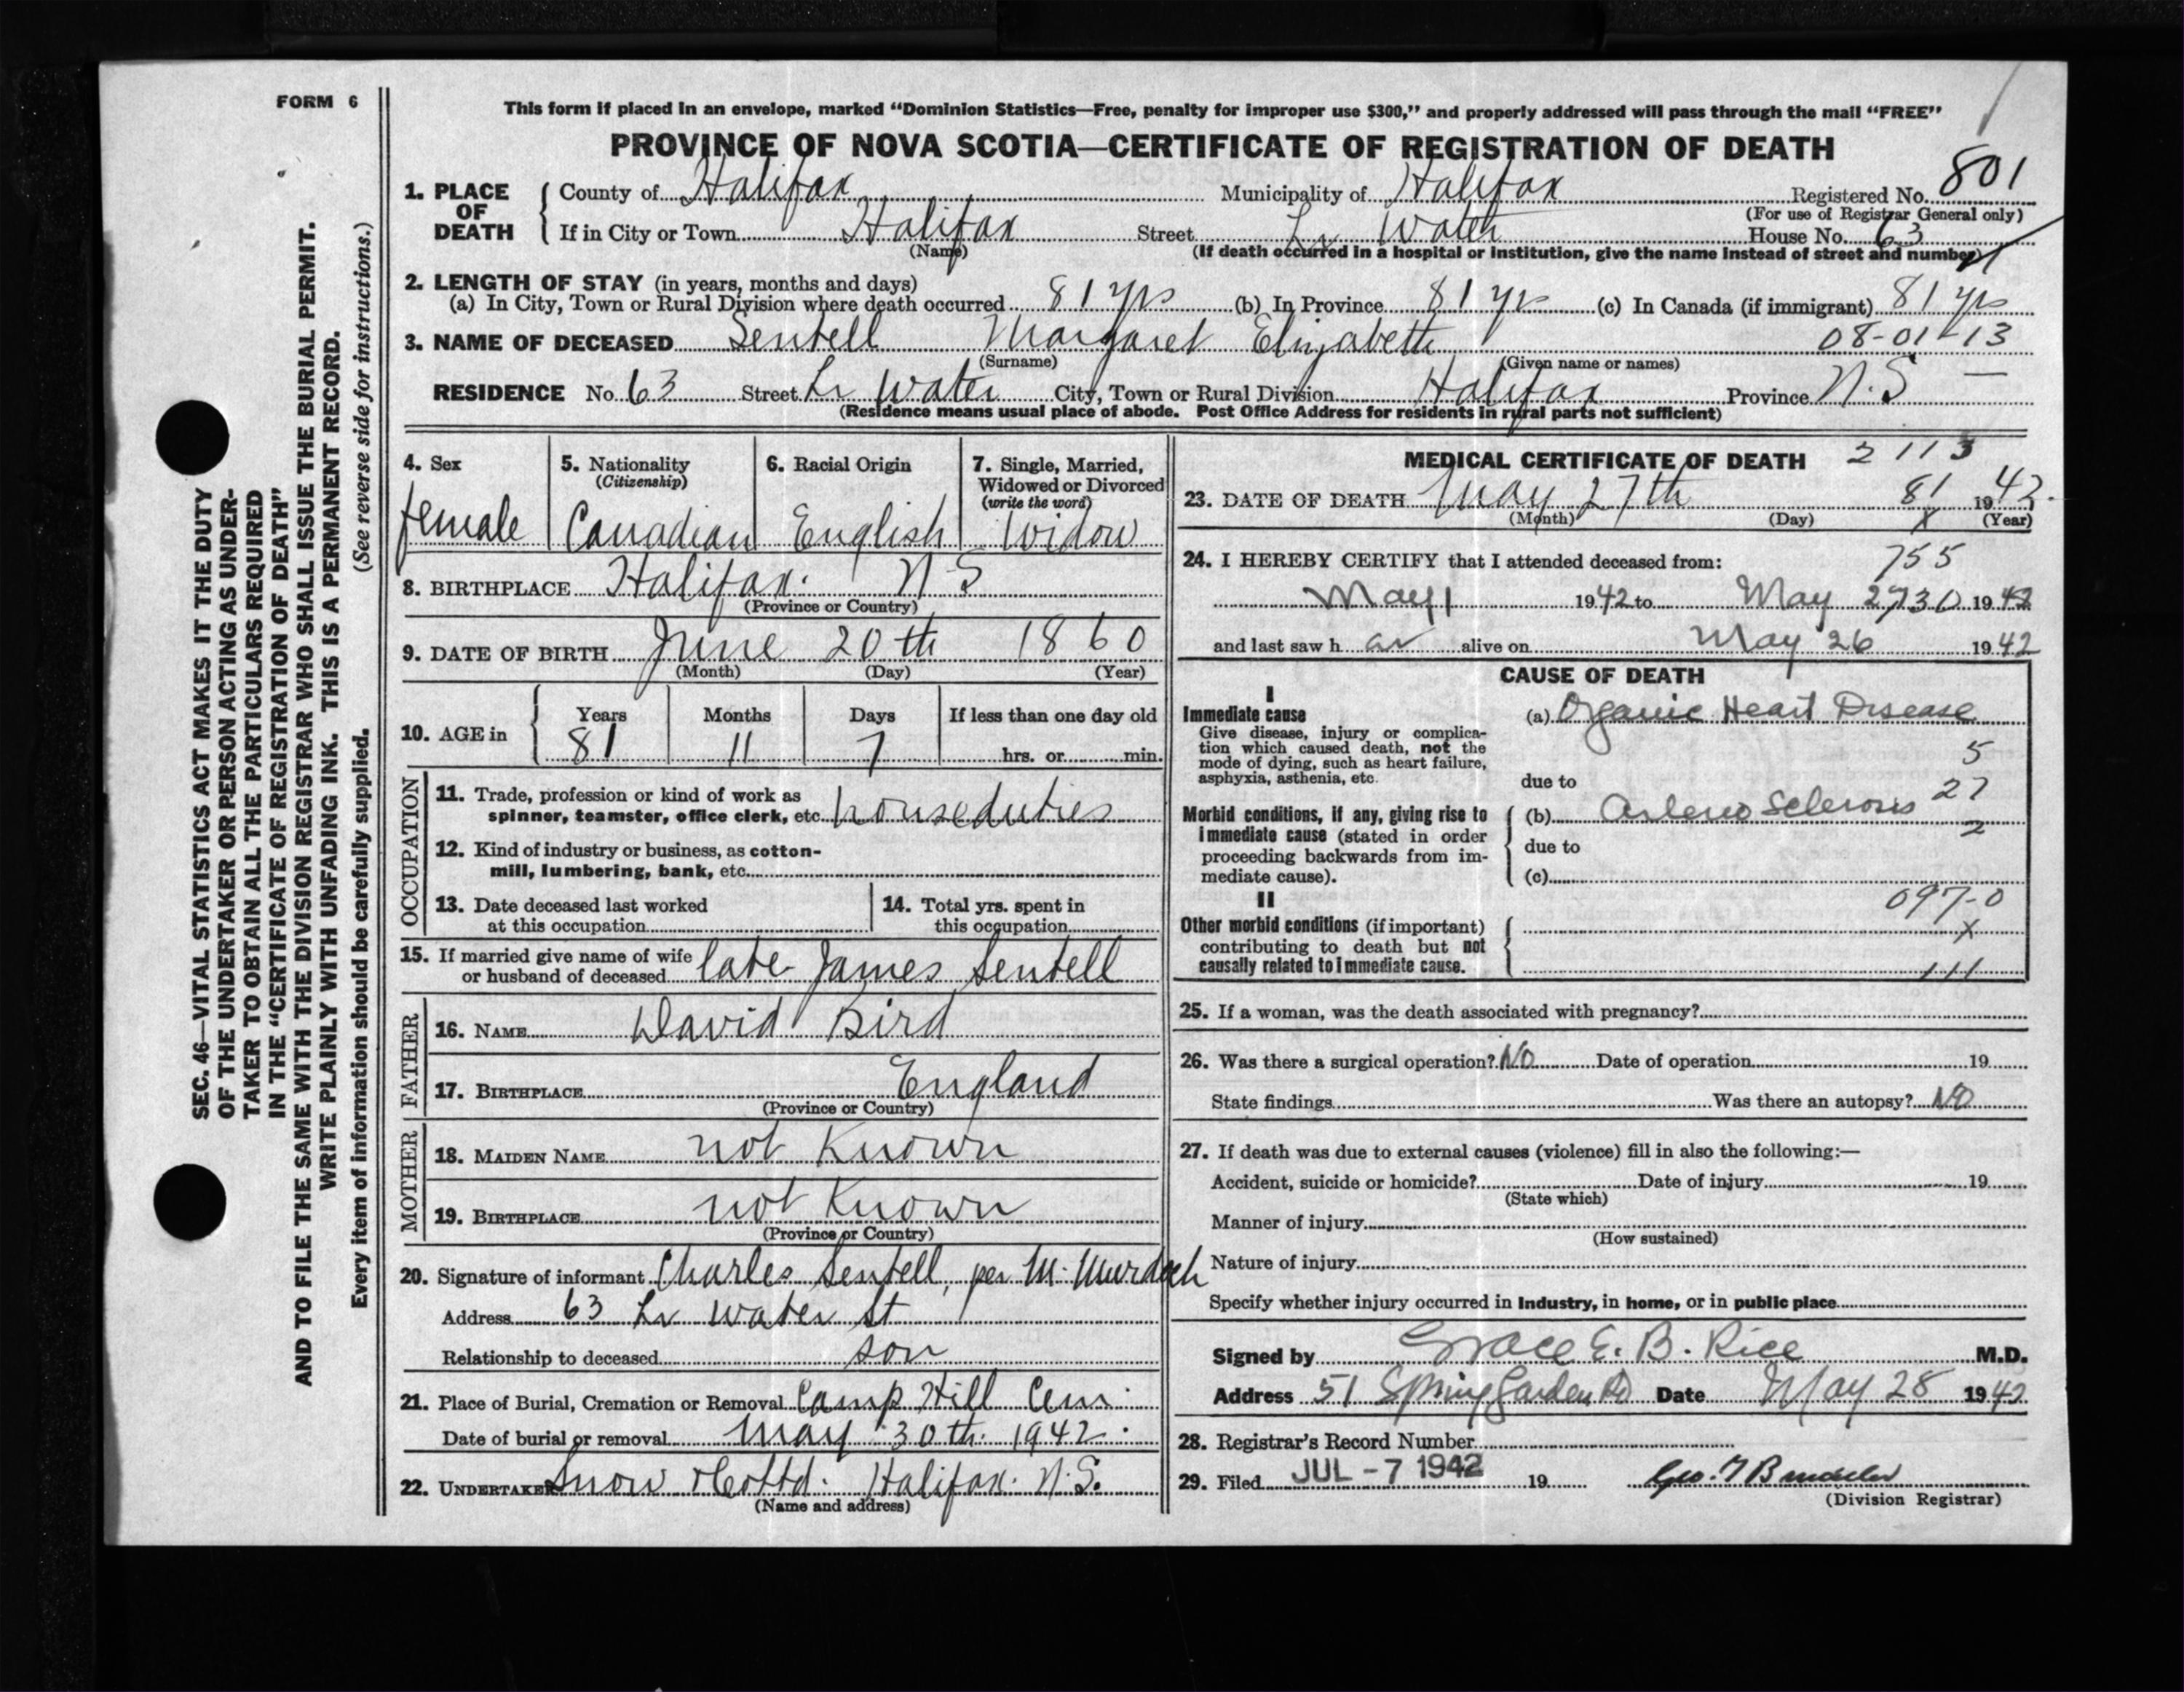 FORM 6
SEC. 46—VITAL STATISTICS ACT MAKES IT THE DUTY
OF THE UNDERTAKER OR PERSON ACTING AS UNDER-
TAKER TO OBTAIN ALL THE PARTICULARS REQUIRED
IN THE "CERTIFICATE OF REGISTRATION OF DEATH"
AND TO FILE THE SAME WITH THE DIVISION REGISTRAR WHO SHALL ISSUE THE BURIAL PERMIT.
WRITE PLAINLY WITH UNFADING INK. THIS IS A PERMANENT RECORD.
Every item of information should be carefully supplied. (See reverse side for instructions.)
This form if placed in an envelope, marked "Dominion Statistics—Free, penalty for improper use $300," and properly addressed will pass through the mail "FREE"
PROVINCE OF NOVA SCOTIA—CERTIFICATE OF REGISTRATION OF DEATH
1. PLACE OF DEATH County of Halifax Municipality of Halifax Registered No. 801
(For use of Registrar General only)
If in City or Town Halifax Street Lr Water House No. 63
(Name) (If death occurred in a hospital or institution, give the name instead of street and number)
2. LENGTH OF STAY (in years, months and days)
(a) In City, Town or Rural Division where death occurred 81 yrs (b) In Province 81 yrs (c) In Canada (if immigrant) 81 yrs
3. NAME OF DECEASED Sentell Margaret Elizabeth 08-01-13
(Surname) (Given name or names)
RESIDENCE No. 63 Street Lr Water City, Town or Rural Division Halifax Province N.S —
(Residence means usual place of abode. Post Office Address for residents in rural parts not sufficient)
4. Sex 5. Nationality (Citizenship) 6. Racial Origin 7. Single, Married, Widowed or Divorced (write the word)
female Canadian English Widow
8. BIRTHPLACE Halifax. N S
(Province or Country)
9. DATE OF BIRTH June 20th 1860
(Month) (Day) (Year)
10. AGE in Years Months Days If less than one day old
81 11 7 hrs. or min.
OCCUPATION
11. Trade, profession or kind of work as
spinner, teamster, office clerk, etc. houseduties
12. Kind of industry or business, as cotton-
mill, lumbering, bank, etc.
13. Date deceased last worked
at this occupation
14. Total yrs. spent in
this occupation
15. If married give name of wife
or husband of deceased late James Sentell
FATHER
16. NAME David Bird
17. BIRTHPLACE England
(Province or Country)
MOTHER
18. MAIDEN NAME not Known
19. BIRTHPLACE not Known
(Province or Country)
20. Signature of informant Charles Sentell, per M. Murdoch
Address 63 Lr Water St
Relationship to deceased son
21. Place of Burial, Cremation or Removal Camp Hill Cem.
Date of burial or removal May 30th. 1942.
22. UNDERTAKER Snow & Co Ltd. Halifax. N.S.
(Name and address)
MEDICAL CERTIFICATE OF DEATH 2113
23. DATE OF DEATH May 27th 81 1942.
(Month) (Day) X (Year)
24. I HEREBY CERTIFY that I attended deceased from: 755
May 1 1942 to May 27 30 1942
and last saw h er alive on May 26 1942
CAUSE OF DEATH
I
Immediate cause (a) Organic Heart Disease
Give disease, injury or complica-
tion which caused death, not the
mode of dying, such as heart failure,
asphyxia, asthenia, etc. 5
due to
Morbid conditions, if any, giving rise to
immediate cause (stated in order
proceeding backwards from im-
mediate cause).
(b) Arterio Sclerosis 27
2
due to
(c)
II 097-0
Other morbid conditions (if important)
contributing to death but not
causally related to immediate cause.
X
111
25. If a woman, was the death associated with pregnancy?
26. Was there a surgical operation? No Date of operation 19
State findings Was there an autopsy? No
27. If death was due to external causes (violence) fill in also the following:—
Accident, suicide or homicide? Date of injury 19
(State which)
Manner of injury
(How sustained)
Nature of injury
Specify whether injury occurred in Industry, in home, or in public place
Signed by Grace E. B. Rice M.D.
Address 51 Spring Garden Rd Date May 28 1942
28. Registrar's Record Number
29. Filed JUL -7 1942 19
(Division Registrar)